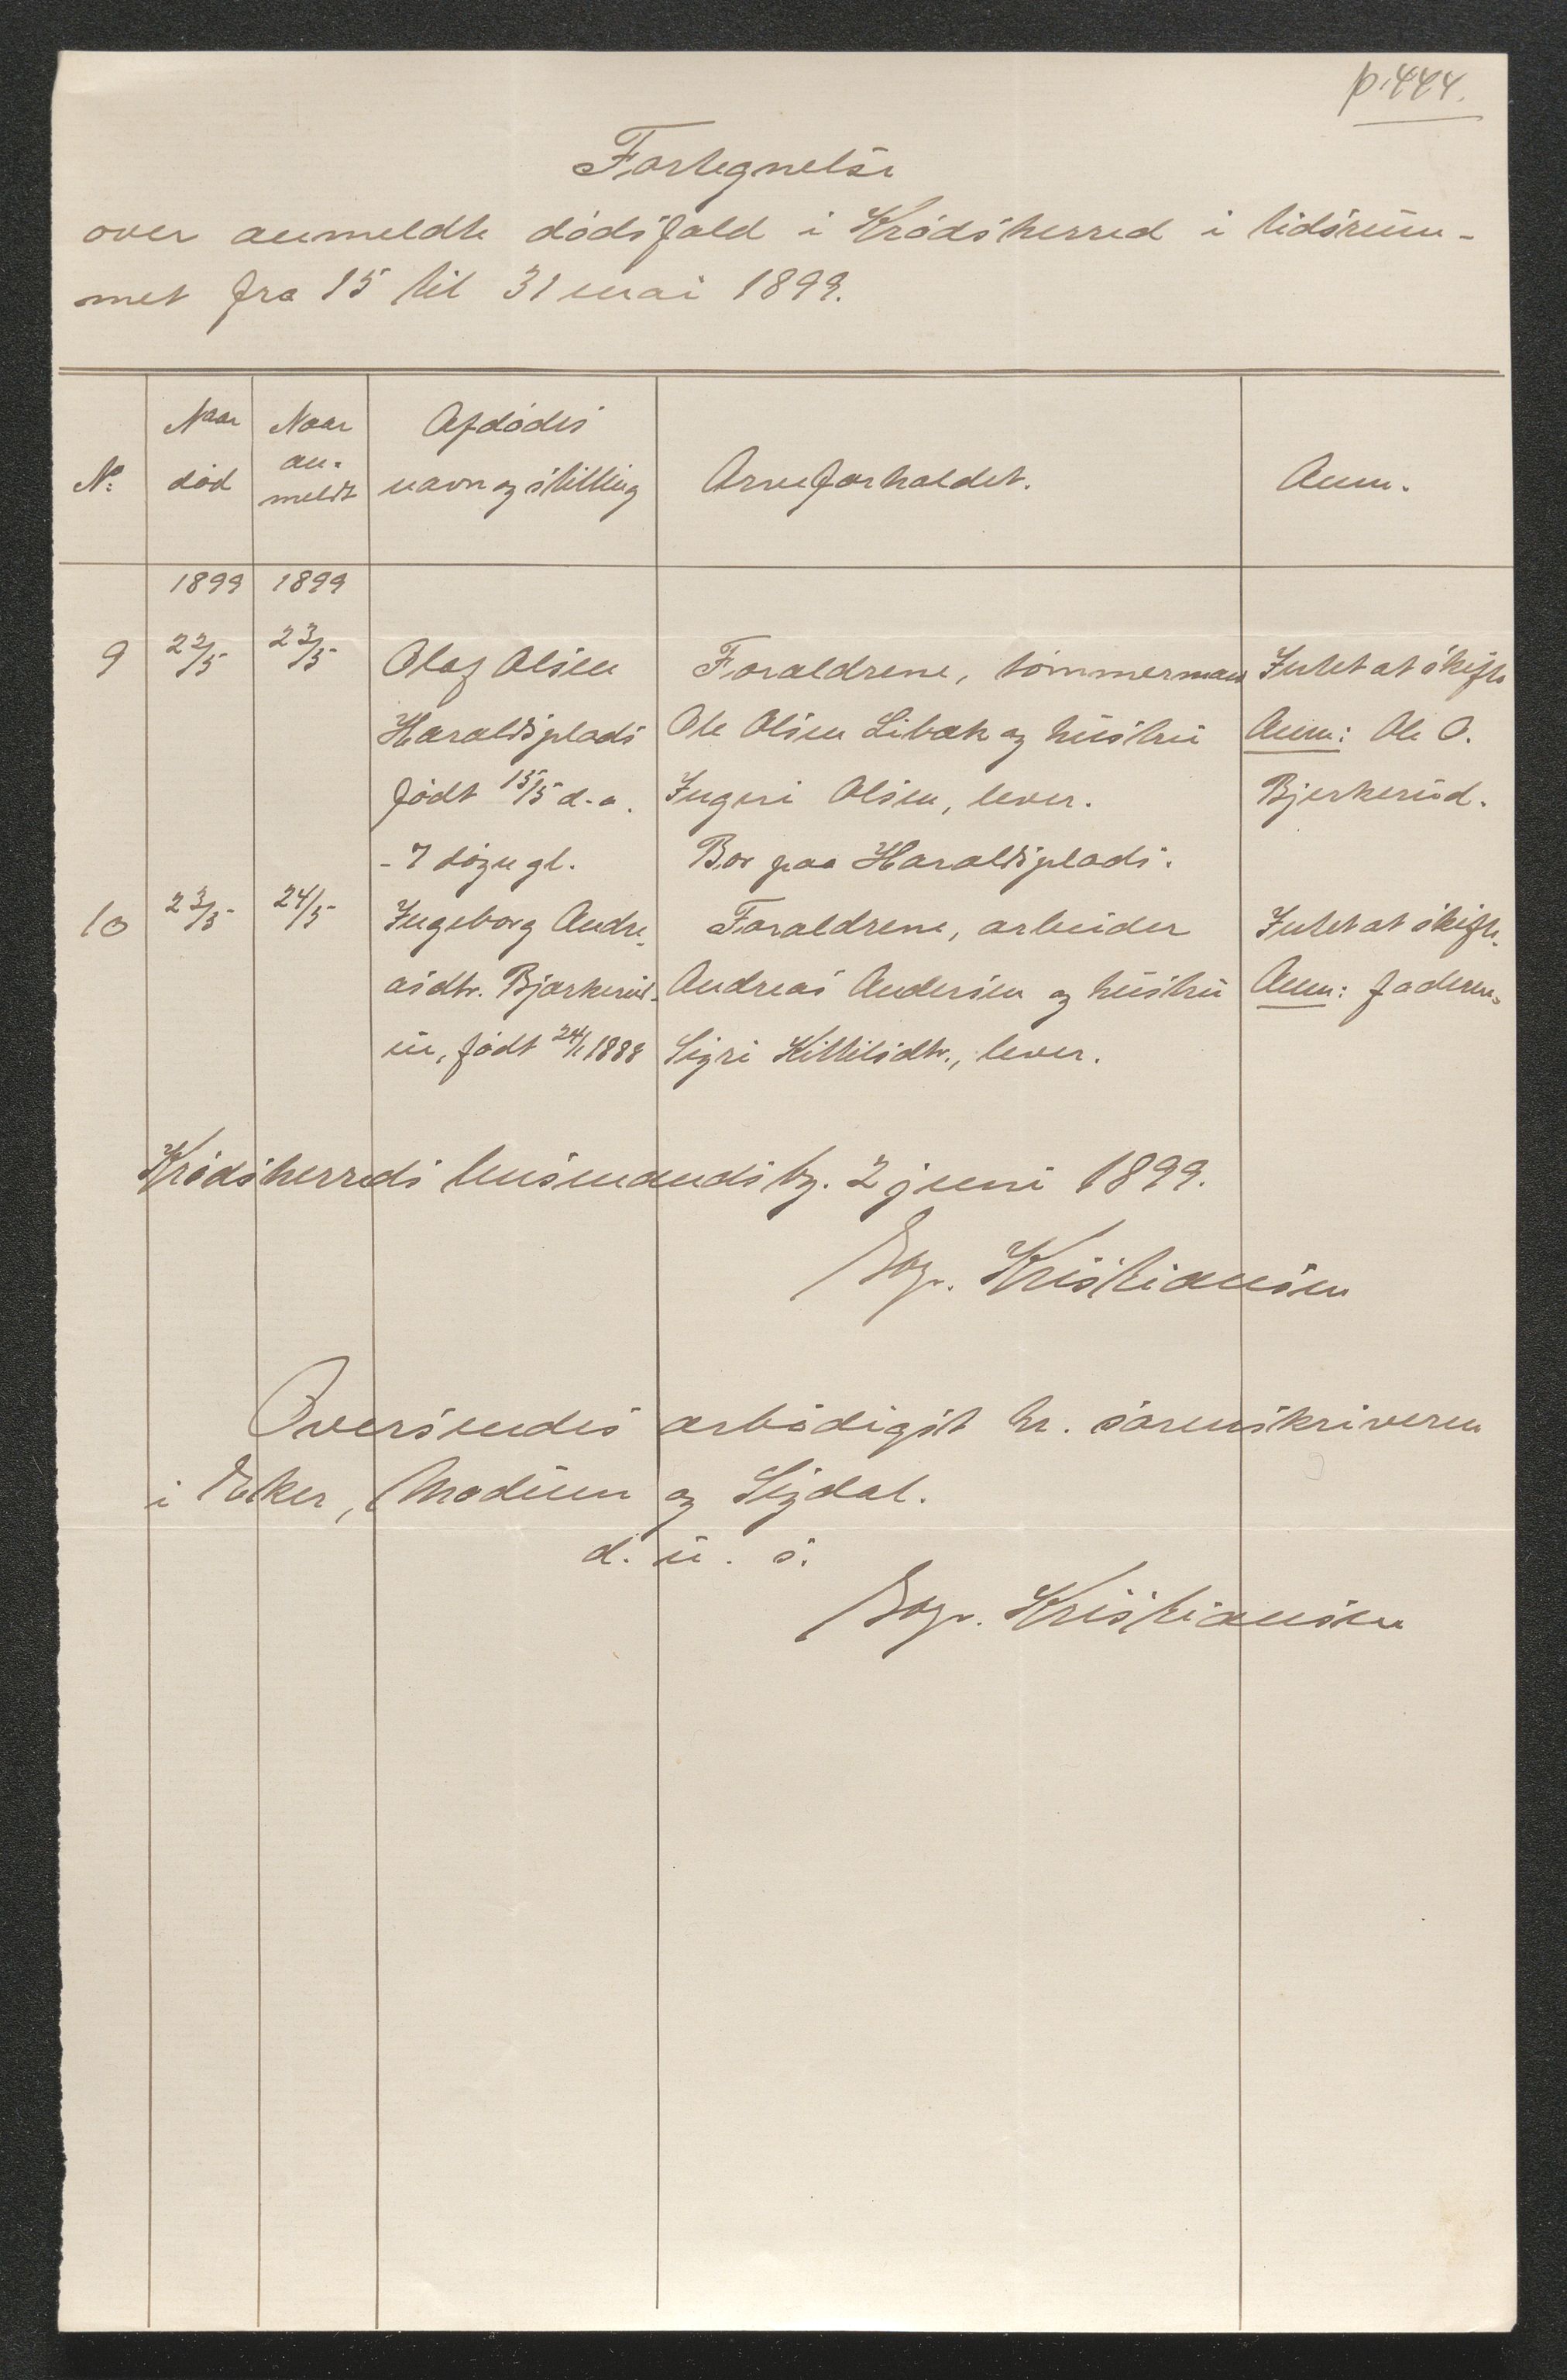 p. 444.
Fortegnelse
over anmeldte dødsfald i Krødsherred i tidsrum-
met fra 15 til 31 mai 1899.
No:
Naar
død
Naar
an-
meldt
Afdødes
navn og stilling
Arveforholdet.
Anm.
1899 1899
9 22/5 23/5 Olaf Olsen Forældrene, tømmermand Intet at skifte
Haraldsplads Ole Olsen Libæk og hustru Anm: Ole O.
født 15/5 d. a. Ingeri Olsen, lever. Bjerkerud.
- 7 døgn gl. Bor paa Haraldsplads.
10 23/5 24/5 Ingeborg Andre- Forældrene, arbeider Intet at skifte.
asdtr. Bjørkerud- Andreas Andersen og hustru Anm: faderen.
ie, født 24/1 1888 Sigri Kittilsdtr., lever.
Krødsherreds lensmandsbg. 2 juni 1899.
Kristiansen
Oversendes ærbødigst hr. sorenskriveren
i Eker, Modum og Sigdal.
d. u. s.
Kristiansen